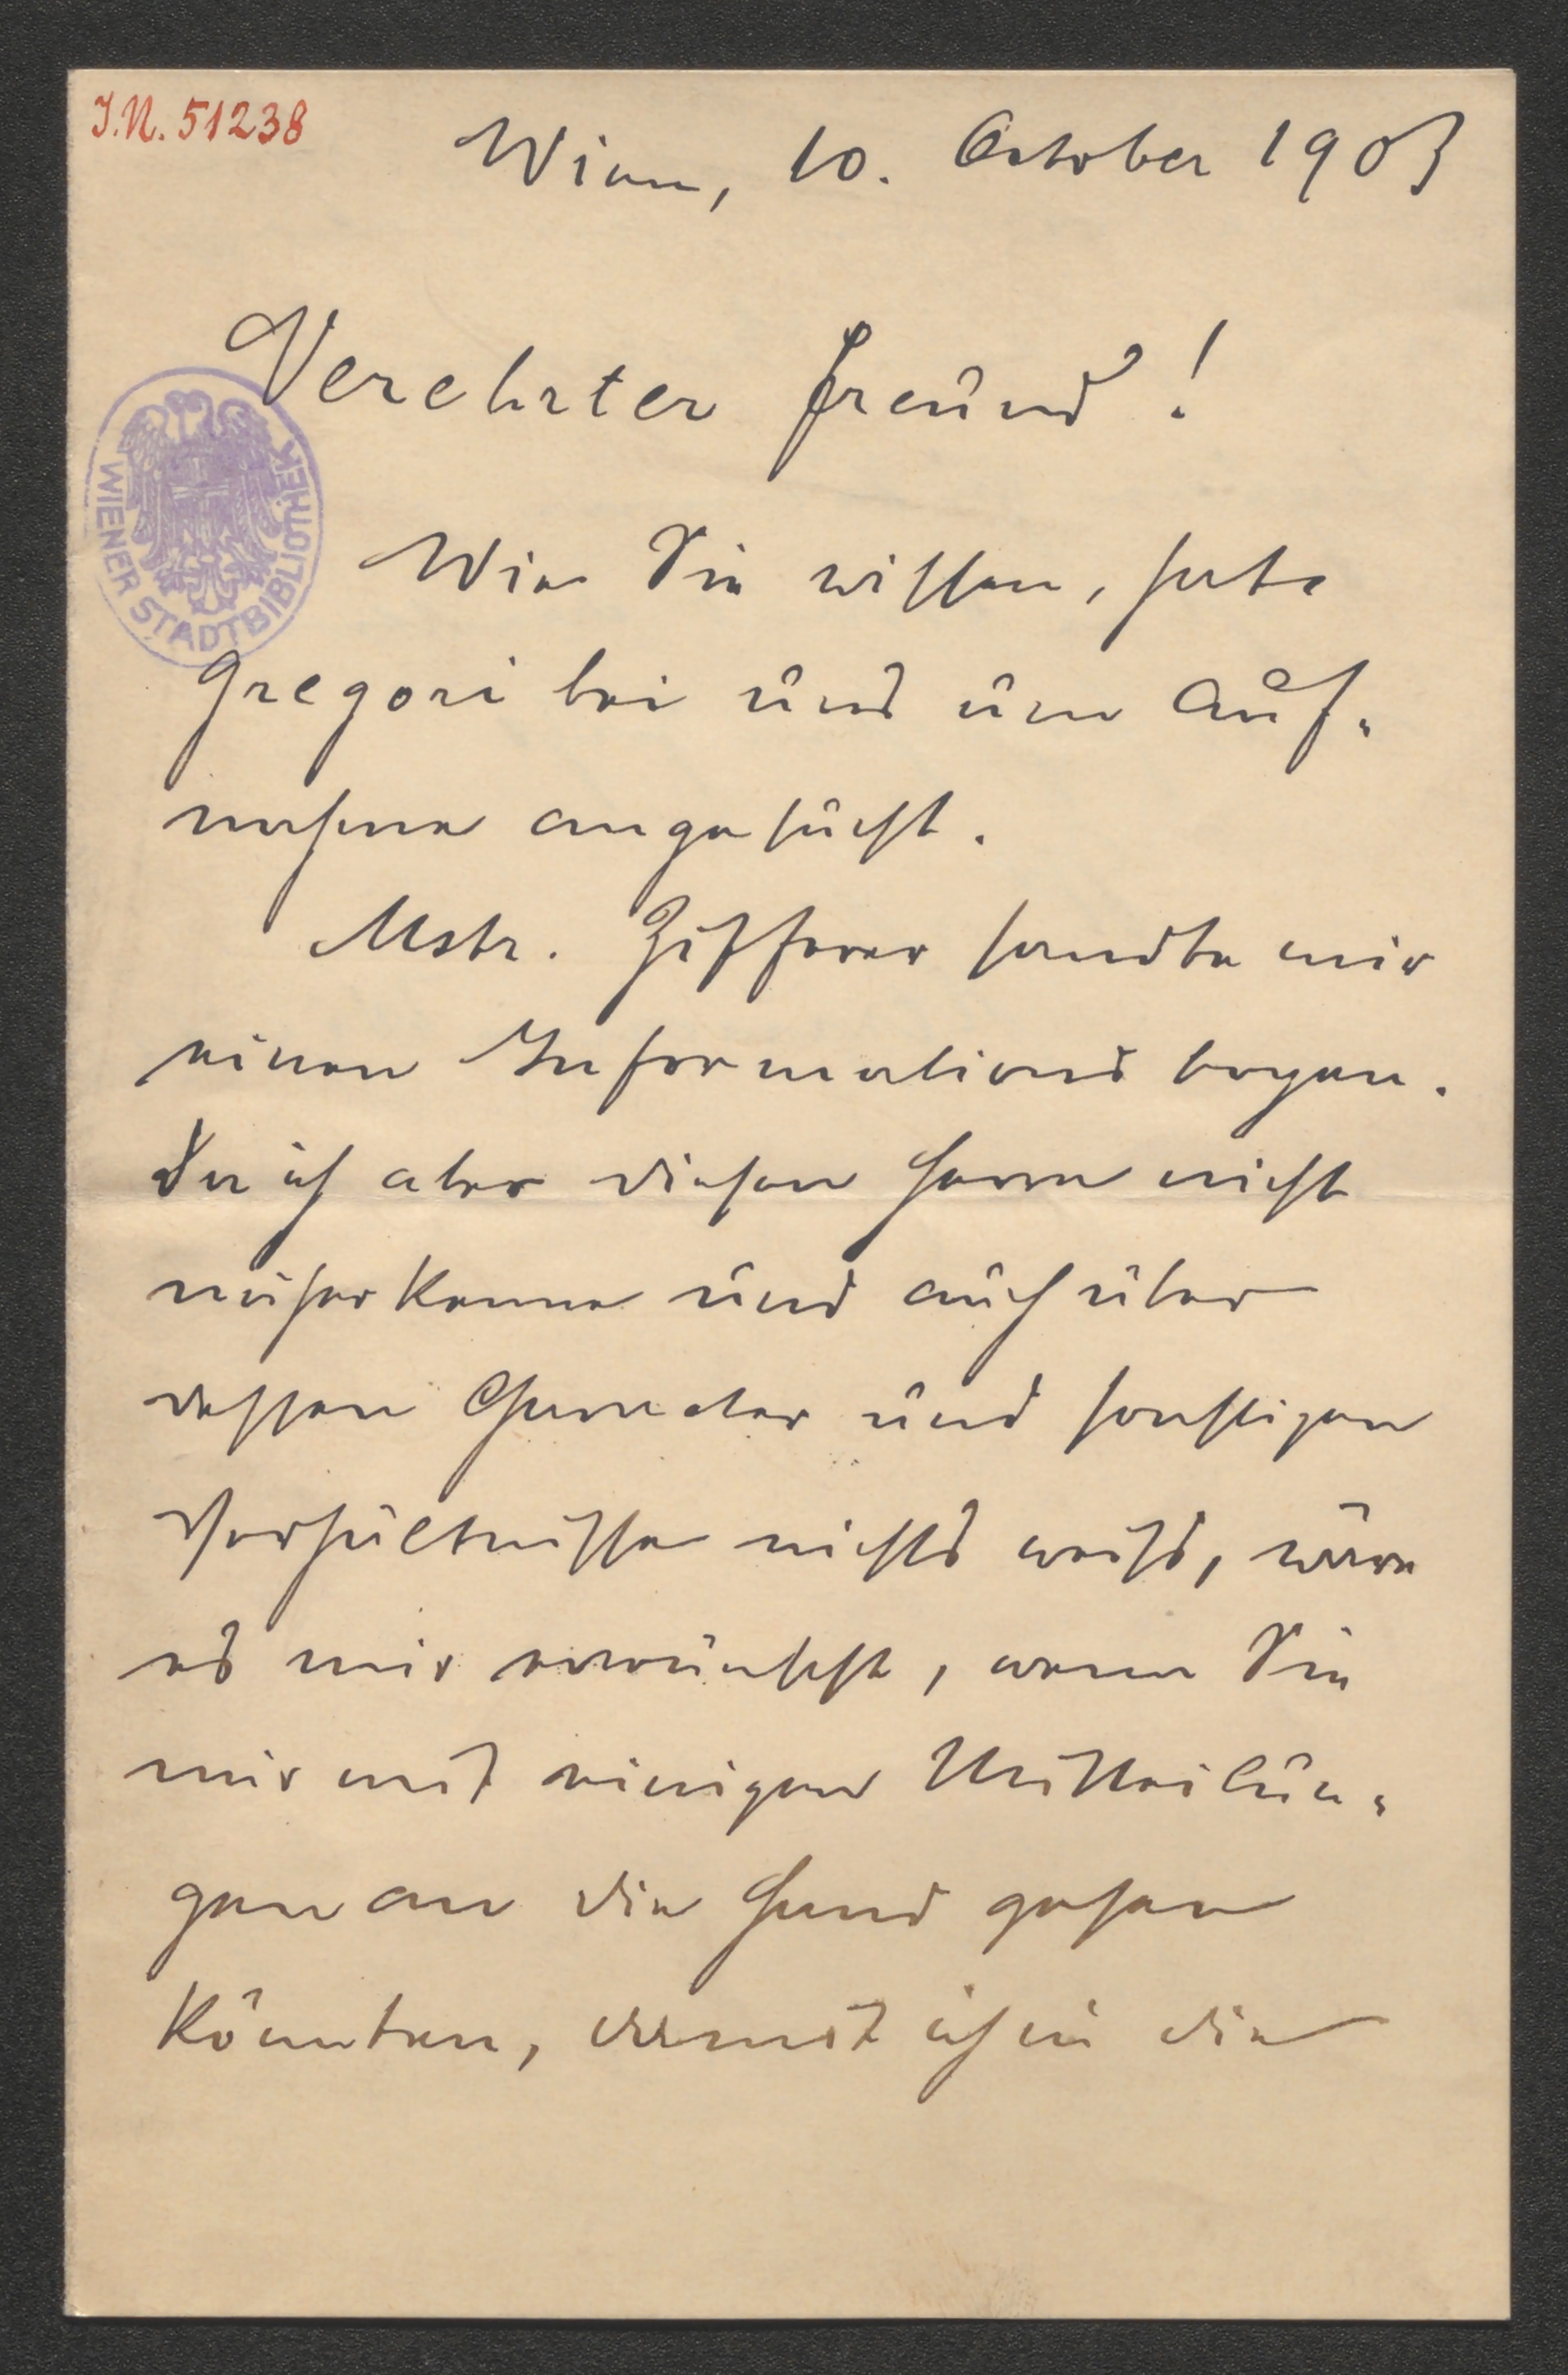 J.N. 51238
Wien, 10. October 1903
Verehrter Freund!
WIENER STADTBIBLIOTHEK
Wie Sie wissen, hat
Gregori bei uns um Auf-
nahme angesucht.
Mstr. Zifferer sandte mir
einen Informationsbogen.
Da ich aber diesen Herrn nicht
näher kenne und auch über
dessen Character und sonstigen
Verhältnisse nichts weiß, wäre
es mir erwünscht, wenn Sie
mir mit einigen Mitteilun-
gen an die Hand gehen
könnten, damit ich in die